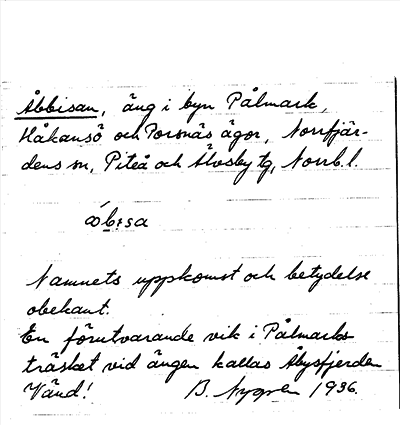 Åbbisan, äng i byn Pålmark,
Håkansö och Porsnäs ägor, Norrfjär-
dens sn, Piteå och Älvsby tg, Norrb. l.
åb:sa
Namnets uppkomst och betydelse
obekant.
En förutvarande vik i Pålmarks-
träsket vid ängen kallas Åbysfjerden
Vänd! B. Nygren 1936.